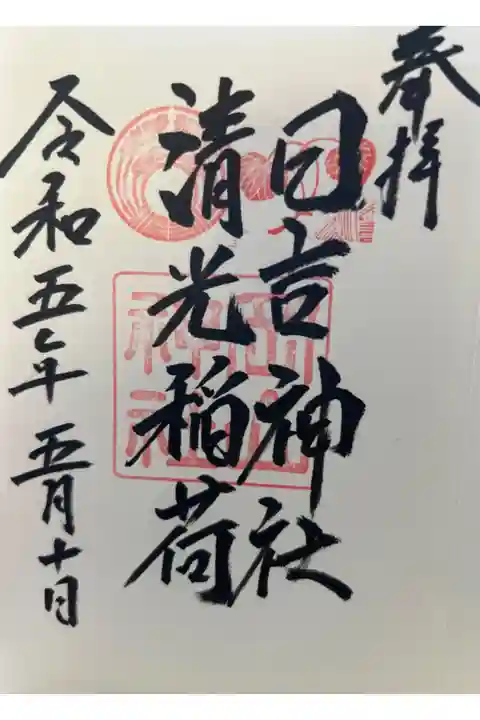 奉拝
日吉神社
清光稲荷
令和五年五月十日